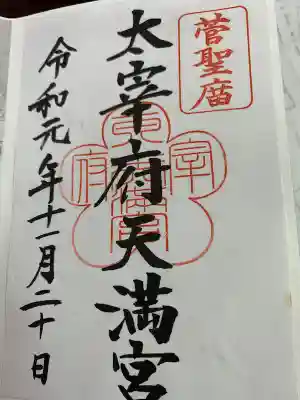 菅聖廟
太宰府天満宮
令和元年十一月二十日